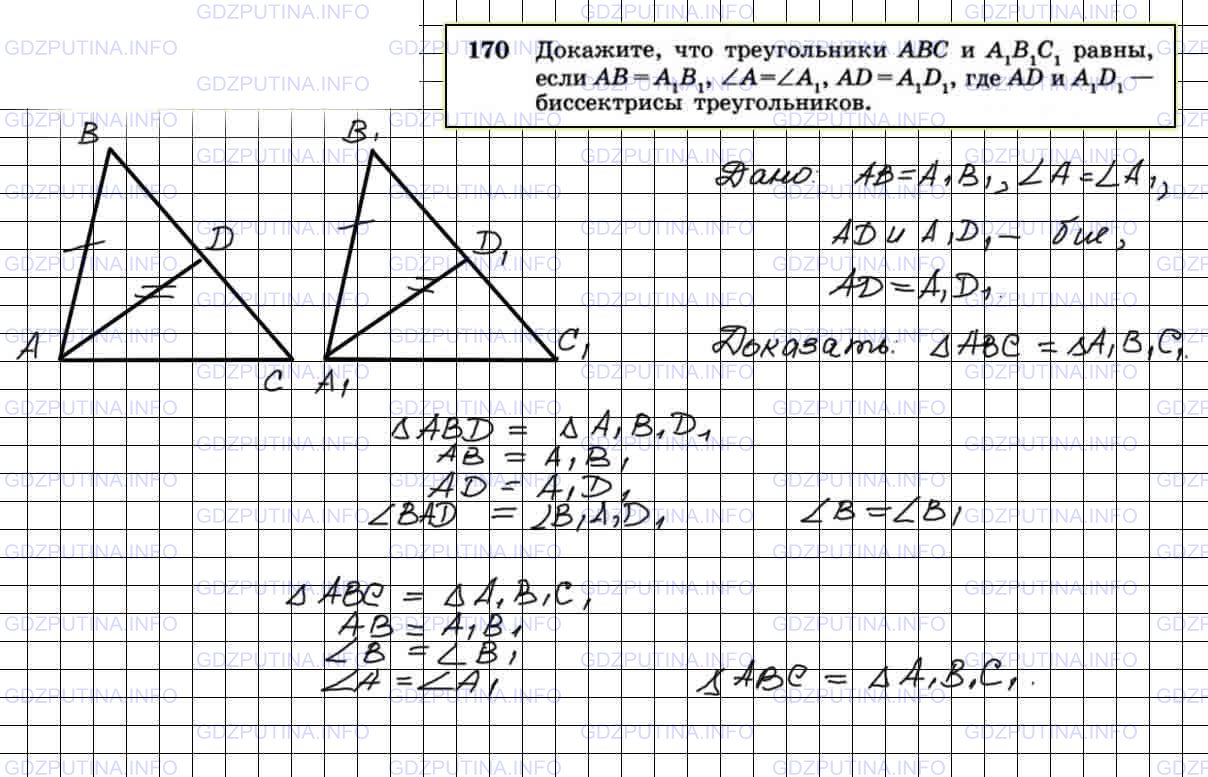 170 Докажите, что треугольники ABC и A₁B₁C₁ равны,
если AB = A₁B₁, ∠A = ∠A₁, AD = A₁D₁, где AD и A₁D₁ —
биссектрисы треугольников.
B
D
A
C
B₁
D₁
A₁
C₁
Дано: AB = A₁B₁, ∠A = ∠A₁,
AD и A₁D₁ – бис,
AD = A₁D₁.
Доказать: △ABC = △A₁B₁C₁.
△ABD = △A₁B₁D₁
AB = A₁B₁
AD = A₁D₁
∠BAD = ∠B₁A₁D₁ ∠B = ∠B₁
△ABC = △A₁B₁C₁
AB = A₁B₁
∠B = ∠B₁
∠A = ∠A₁ △ABC = △A₁B₁C₁.
GDZPUTINA.INFO